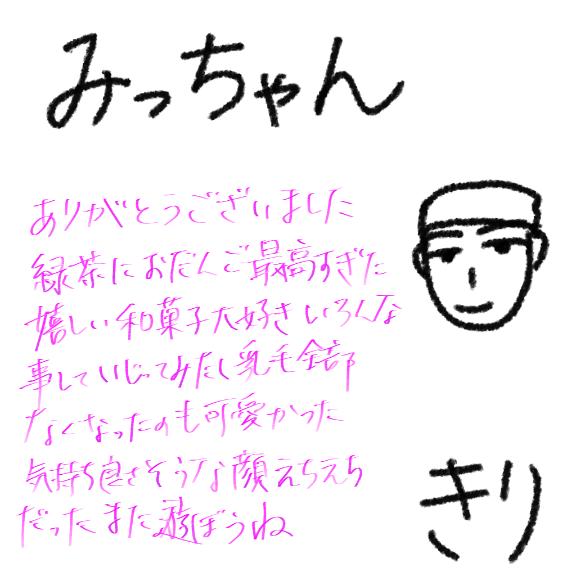 みっちゃん
ありがとうございました
緑茶におだんご最高すぎた
嬉しい和菓子大好きいろんな
事していじってみたし乳毛全部
なくなったのも可愛かった
気持ち良さそうな顔えちえち
だったまた遊ぼうね
きり